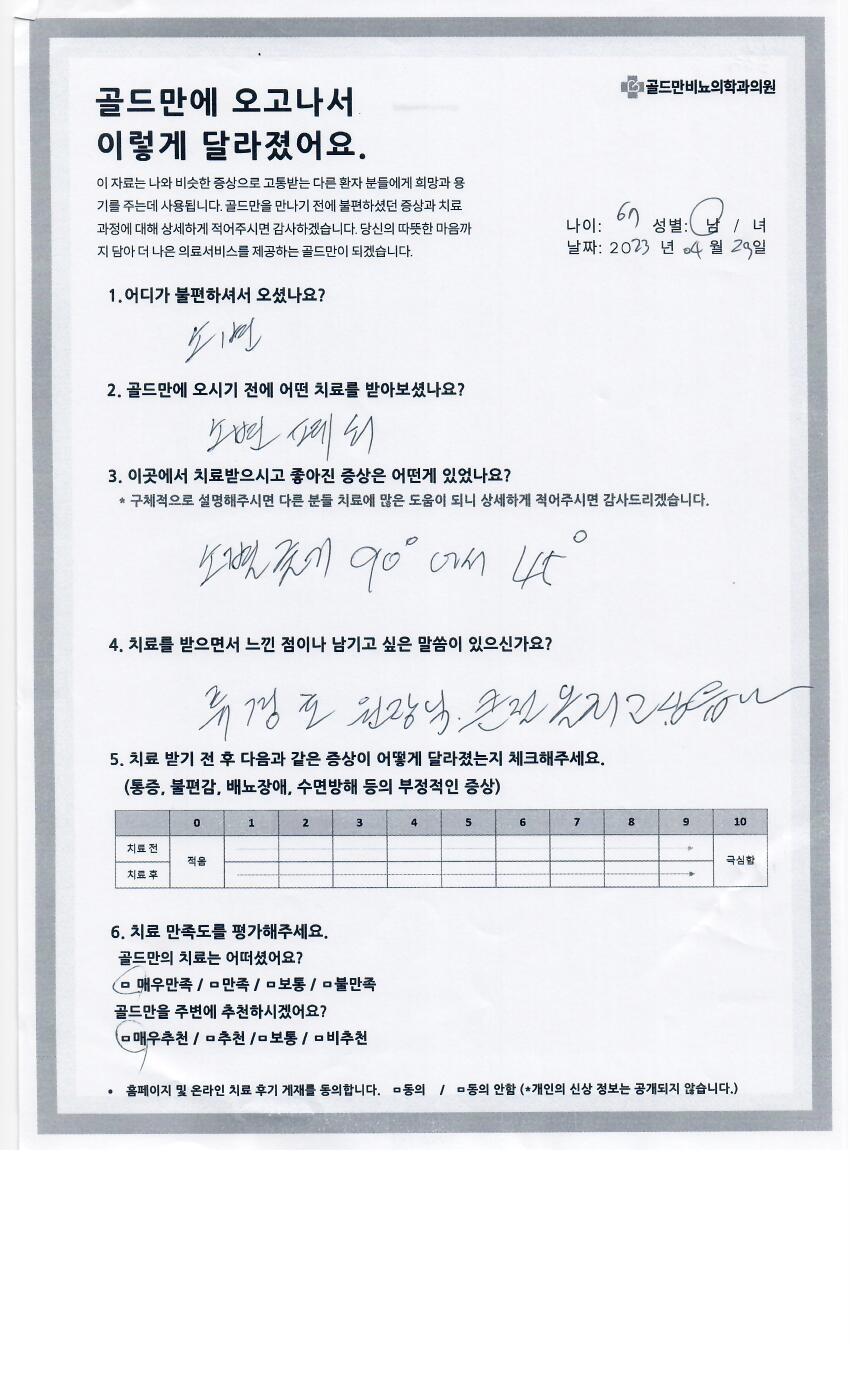 골드만에 오고나서
이렇게 달라졌어요.
골드만비뇨의학과의원
이 자료는 나와 비슷한 증상으로 고통받는 다른 환자 분들에게 희망과 용
기를 주는데 사용됩니다. 골드만을 만나기 전에 불편하셨던 증상과 치료
과정에 대해 상세하게 적어주시면 감사하겠습니다. 당신의 따뜻한 마음까
지 담아 더 나은 의료서비스를 제공하는 골드만이 되겠습니다.
나이: 67 성별: 남 / 녀
날짜: 2023 년 04 월 29일
1.어디가 불편하셔서 오셨나요?
소변
2. 골드만에 오시기 전에 어떤 치료를 받아보셨나요?
소변
3. 이곳에서 치료받으시고 좋아진 증상은 어떤게 있었나요?
* 구체적으로 설명해주시면 다른 분들 치료에 많은 도움이 되니 상세하게 적어주시면 감사드리겠습니다.
소변줄기 90° 에서 45°
4. 치료를 받으면서 느낀 점이나 남기고 싶은 말씀이 있으신가요?
원장님.
5. 치료 받기 전 후 다음과 같은 증상이 어떻게 달라졌는지 체크해주세요.
(통증, 불편감, 배뇨장애, 수면방해 등의 부정적인 증상)
0 1 2 3 4 5 6 7 8 9 10
치료 전
적음
극심함
치료 후
6. 치료 만족도를 평가해주세요.
골드만의 치료는 어떠셨어요?
매우만족 / 만족 / 보통 / 불만족
골드만을 주변에 추천하시겠어요?
매우추천 / 추천 / 보통 / 비추천
• 홈페이지 및 온라인 치료 후기 게재를 동의합니다. 동의 / 동의 안함 (*개인의 신상 정보는 공개되지 않습니다.)